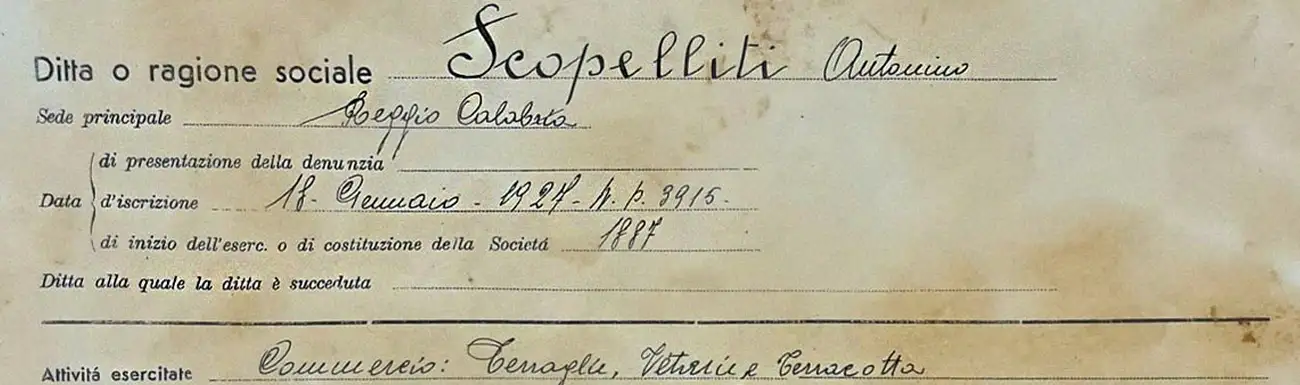 Ditta o ragione sociale Scopelliti Antonino
Sede principale Reggio Calabria
di presentazione della denunzia
Data d'iscrizione 18 - Gennaio - 1927 - N. P. 3915 -
di inizio dell'eserc. o di costituzione della Societá 1887
Ditta alla quale la ditta è succeduta
Attivitá esercitate Commercio: Terraglie, Vetrerie Terracotta